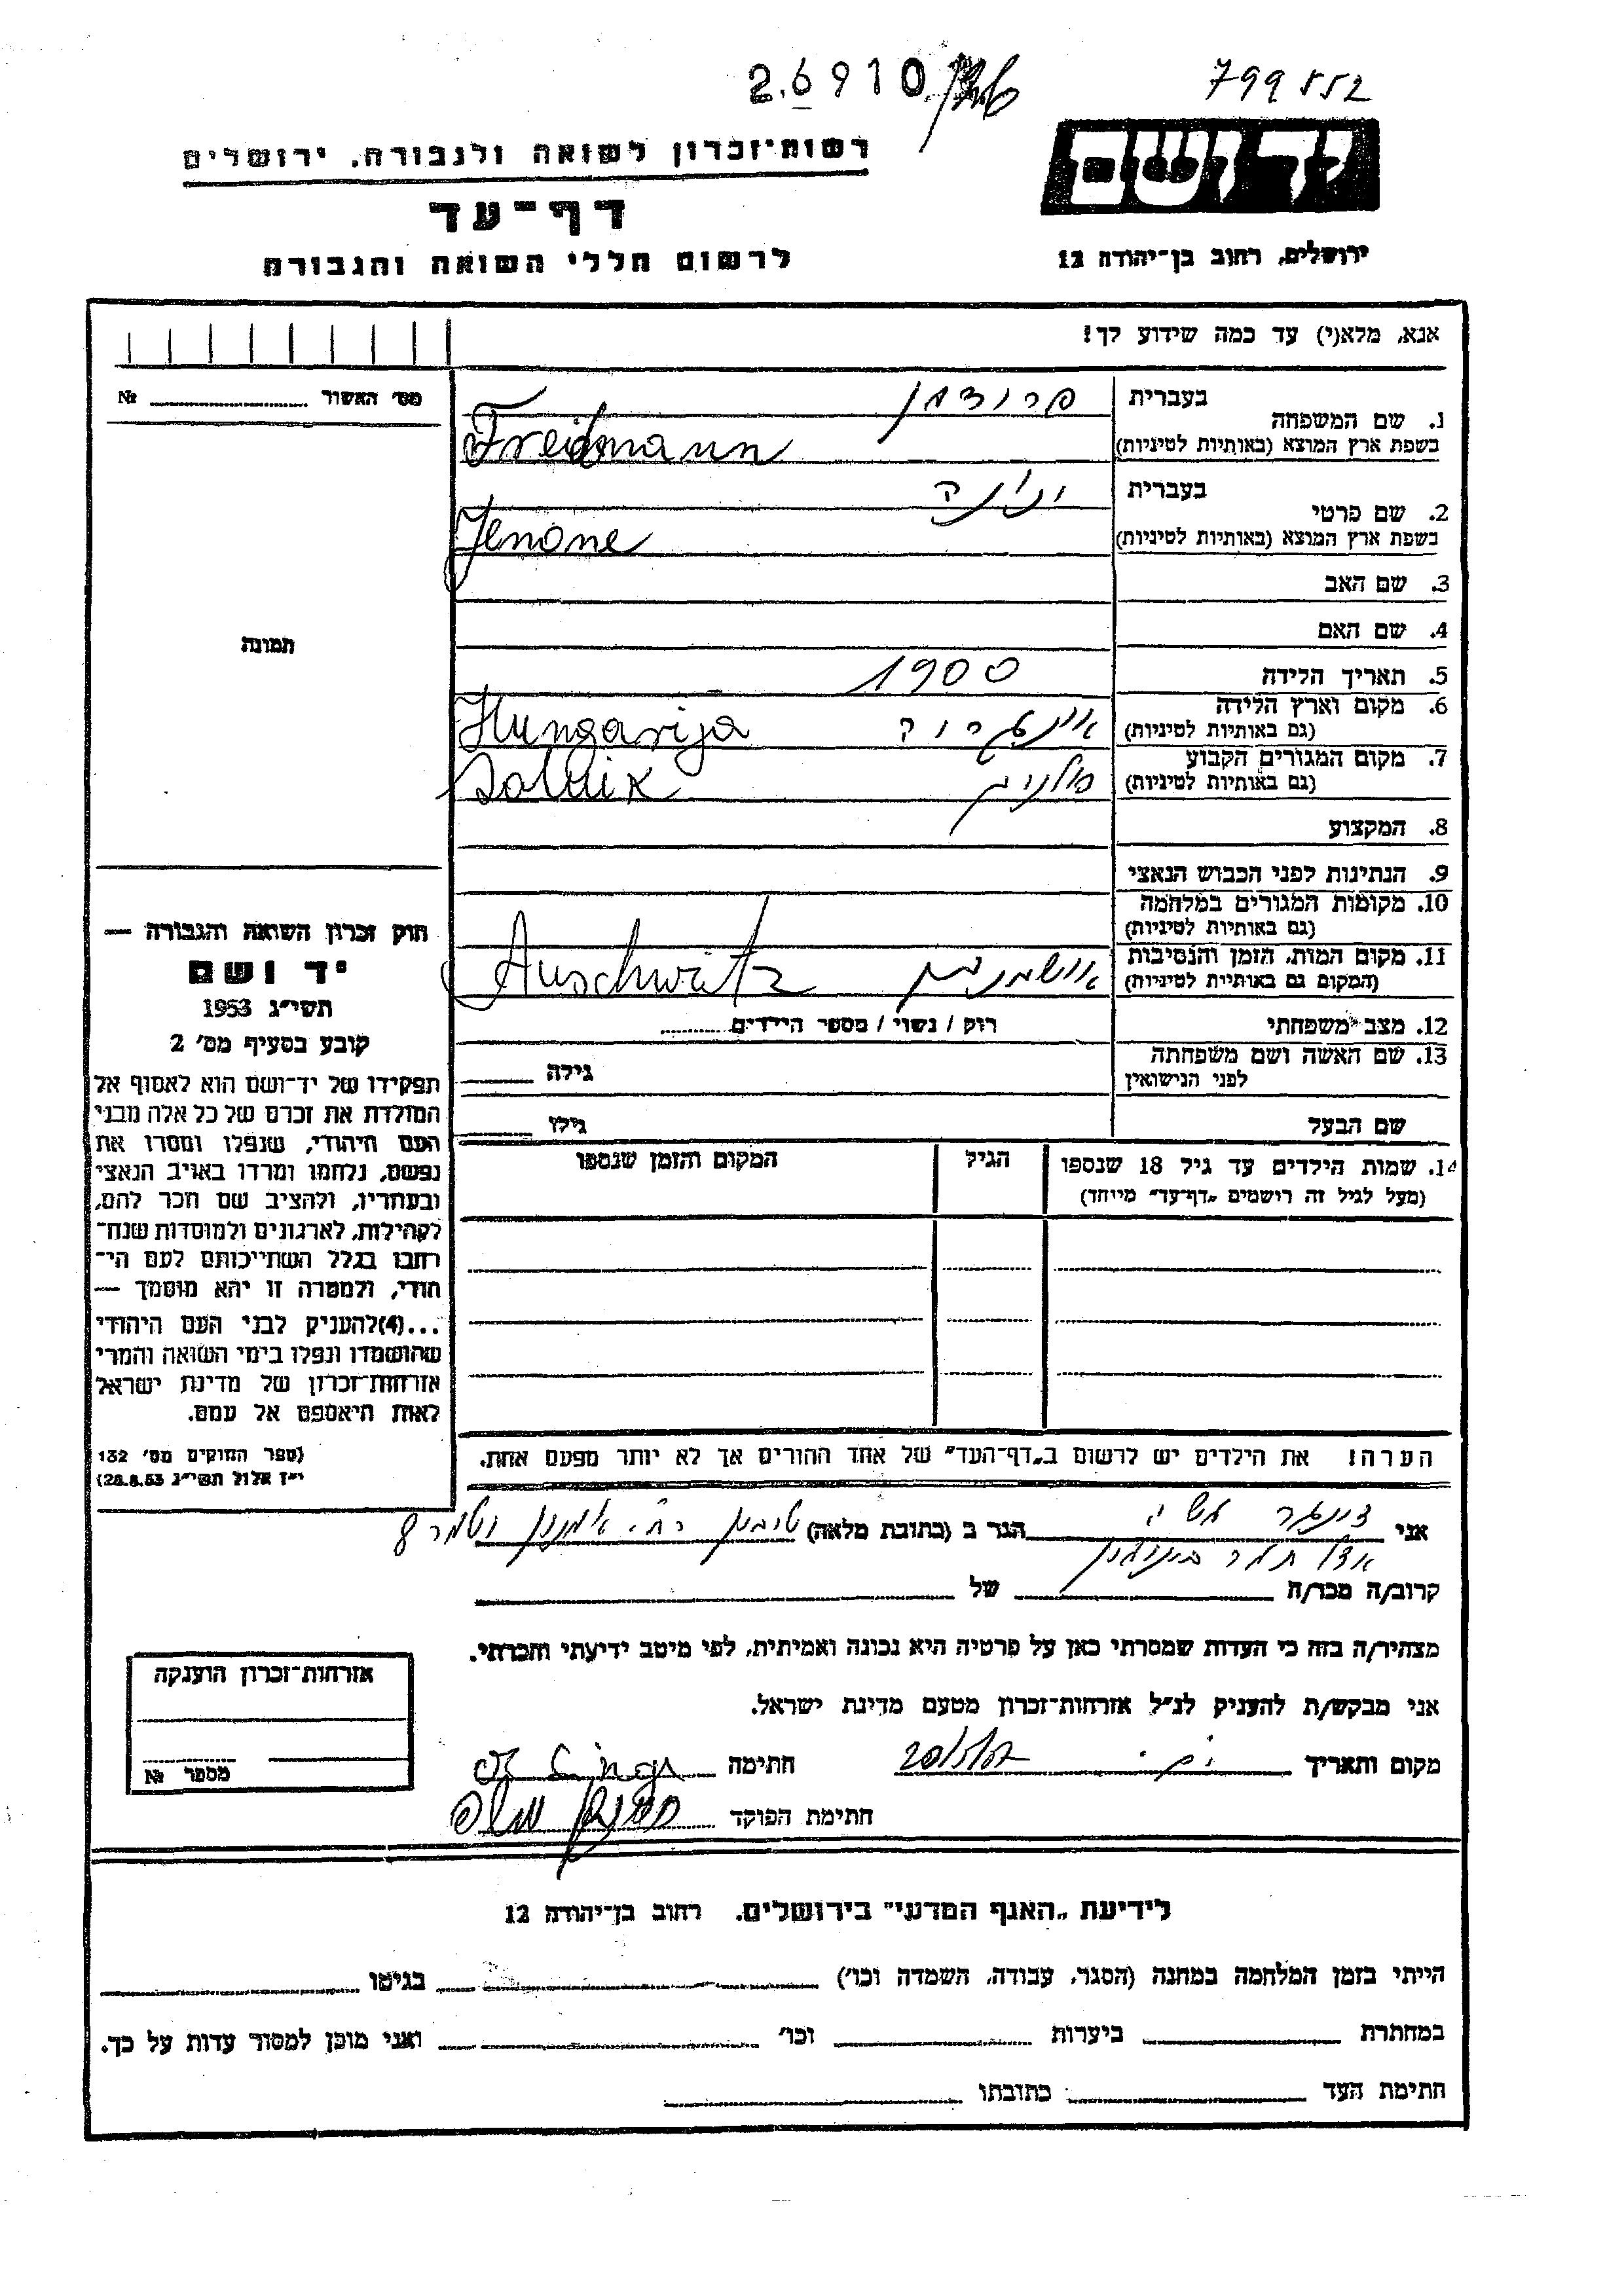 26910
799552
רשות־זכרון לשואה ולגבורה, ירושלים
יד ושם
דף־עד
לרשום חללי השואה והגבורה
ירושלים, רחוב בן־יהודה 12
אנא, מלא(י) עד כמה שידוע לך!
מס' האשור № 
1. שם המשפחה
בעברית
בשפת ארץ המוצא (באותיות לטיניות)
Freidmann
2. שם פרטי
בעברית
בשפת ארץ המוצא (באותיות לטיניות)
Jenone
3. שם האב
4. שם האם
תמונה
5. תאריך הלידה 1900
6. מקום וארץ הלידה
(גם באותיות לטיניות)
Hungarija
7. מקום המגורים הקבוע
(גם באותיות לטיניות)
8. המקצוע
9. הנתינות לפני הכבוש הנאצי
10. מקומות המגורים במלחמה
(גם באותיות לטיניות)
11. מקום המות, הזמן והנסיבות
(המקום גם באותיית לטיניות)
Auschwitz
12. מצב משפחתי רוק / נשוי / מספר הילדים
13. שם האשה ושם משפחתה
לפני הנישואין
גילה
שם הבעל גילו
14. שמות הילדים עד גיל 18 שנספו הגיל המקום והזמן שנספו
(מעל לגיל זה רושמים „דף־עד" מייחד)
חוק זכרון השואה והגבורה —
יד ושם
תשי״ג 1953
קובע בסעיף מס׳ 2
תפקידו של יד־ושם הוא לאסוף אל
המולדת את זכרם של כל אלה מבני
העם היהודי, שנפלו ומסרו את
נפשם, נלחמו ומרדו באויב הנאצי
ובעוזריו, ולהציב שם וזכר להם,
לקהילות, לארגונים ולמוסדות שנח־
רבו בגלל השתייכותם לעם הי־
הודי, ולמטרה זו יהא מוסמך —
...(4)להעניק לבני העם היהודי
שהושמדו ונפלו בימי השואה והמרי
אזרחות־זכרון של מדינת ישראל
לאות היאספם אל עמם.
(ספר החוקים מס׳ 132
י״ז אלול תשי״ג 28.8.53)
הערה! את הילדים יש לרשום ב„דף־העד" של אחד ההורים אך לא יותר מפעם אחת.
אני הגר ב (כתובת מלאה)
קרוב/ה מכר/ה של
מצהיר/ה בזה כי העדות שמסרתי כאן על פרטיה היא נכונה ואמיתית, לפי מיטב ידיעתי והכרתי.
אני מבקש/ת להעניק לנ״ל אזרחות־זכרון מטעם מדינת ישראל.
מקום ותאריך חתימה
חתימת הפוקד
אזרחות־זכרון הוענקה
מספר №
לידיעת „האגף המדעי" בירושלים. רחוב בן־יהודה 12
הייתי בזמן המלחמה במחנה (הסגר, עבודה, השמדה וכו׳) בגיטו
במחתרת ביערות וכו׳ ואני מוכן למסור עדות על כך.
חתימת העד כתובתו